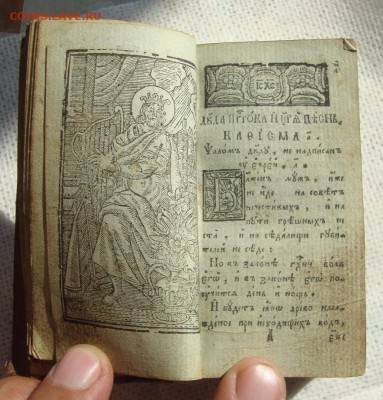 І҆С ХС
Дв҃да прⷪ҇ка и҆ цр҃ѧ пѣснь.
Каѳїсма а҃.
Ѱаломъ дв҃дꙋ, не надписанъ
ꙋ҆ є҆врей, а҃.
Блаженъ мꙋжъ, и҆же
не и҆де на совѣтъ
нечестивыхъ, и҆ на
пꙋти грѣшныхъ не
ста, и҆ на сѣдалищи гꙋби
телей не сѣде:
Но въ законѣ гдⷭ҇ни волѧ
є҆гѡ, и҆ въ законѣ є҆гѡ по
ꙋчитсѧ день и҆ нощь.
И҆ бꙋдетъ ꙗ҆кѡ древо наса
жденое при и҆сходищихъ водъ,
А є҆же